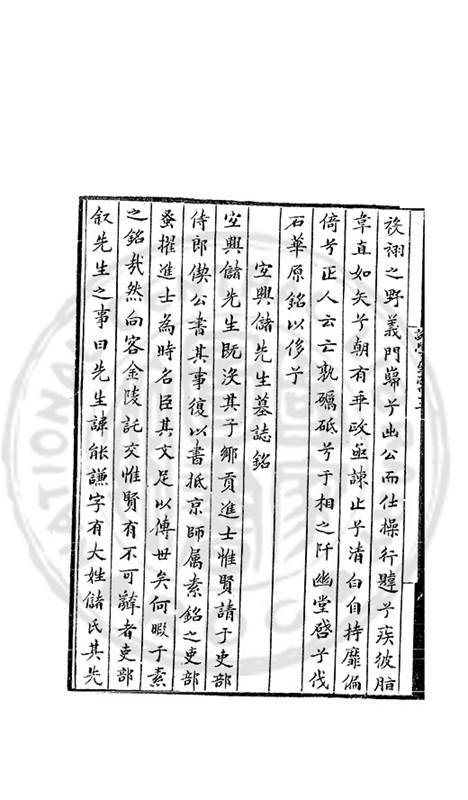 祋祤之野義門巋兮出公而仕操行韙兮疾彼脂
韋直如矢兮朝有乖政亟諫止兮清白自持靡偏
倚兮正人云亡孰礪砥兮于相之阡幽堂啓兮伐
石華原銘以侈兮
宜興儲先生墓誌銘
宜興儲先生既沒其子鄉貢進士惟賢請于吏部
侍郎偰公書其事復以書抵京師属素銘之吏部
蚤擢進士為時名臣其文足以傳世矣何暇于素
之銘㢤然向客金陵託交惟賢有不可辭者吏部
叙先生之事曰先生諱能謙字有大姓儲氏其先